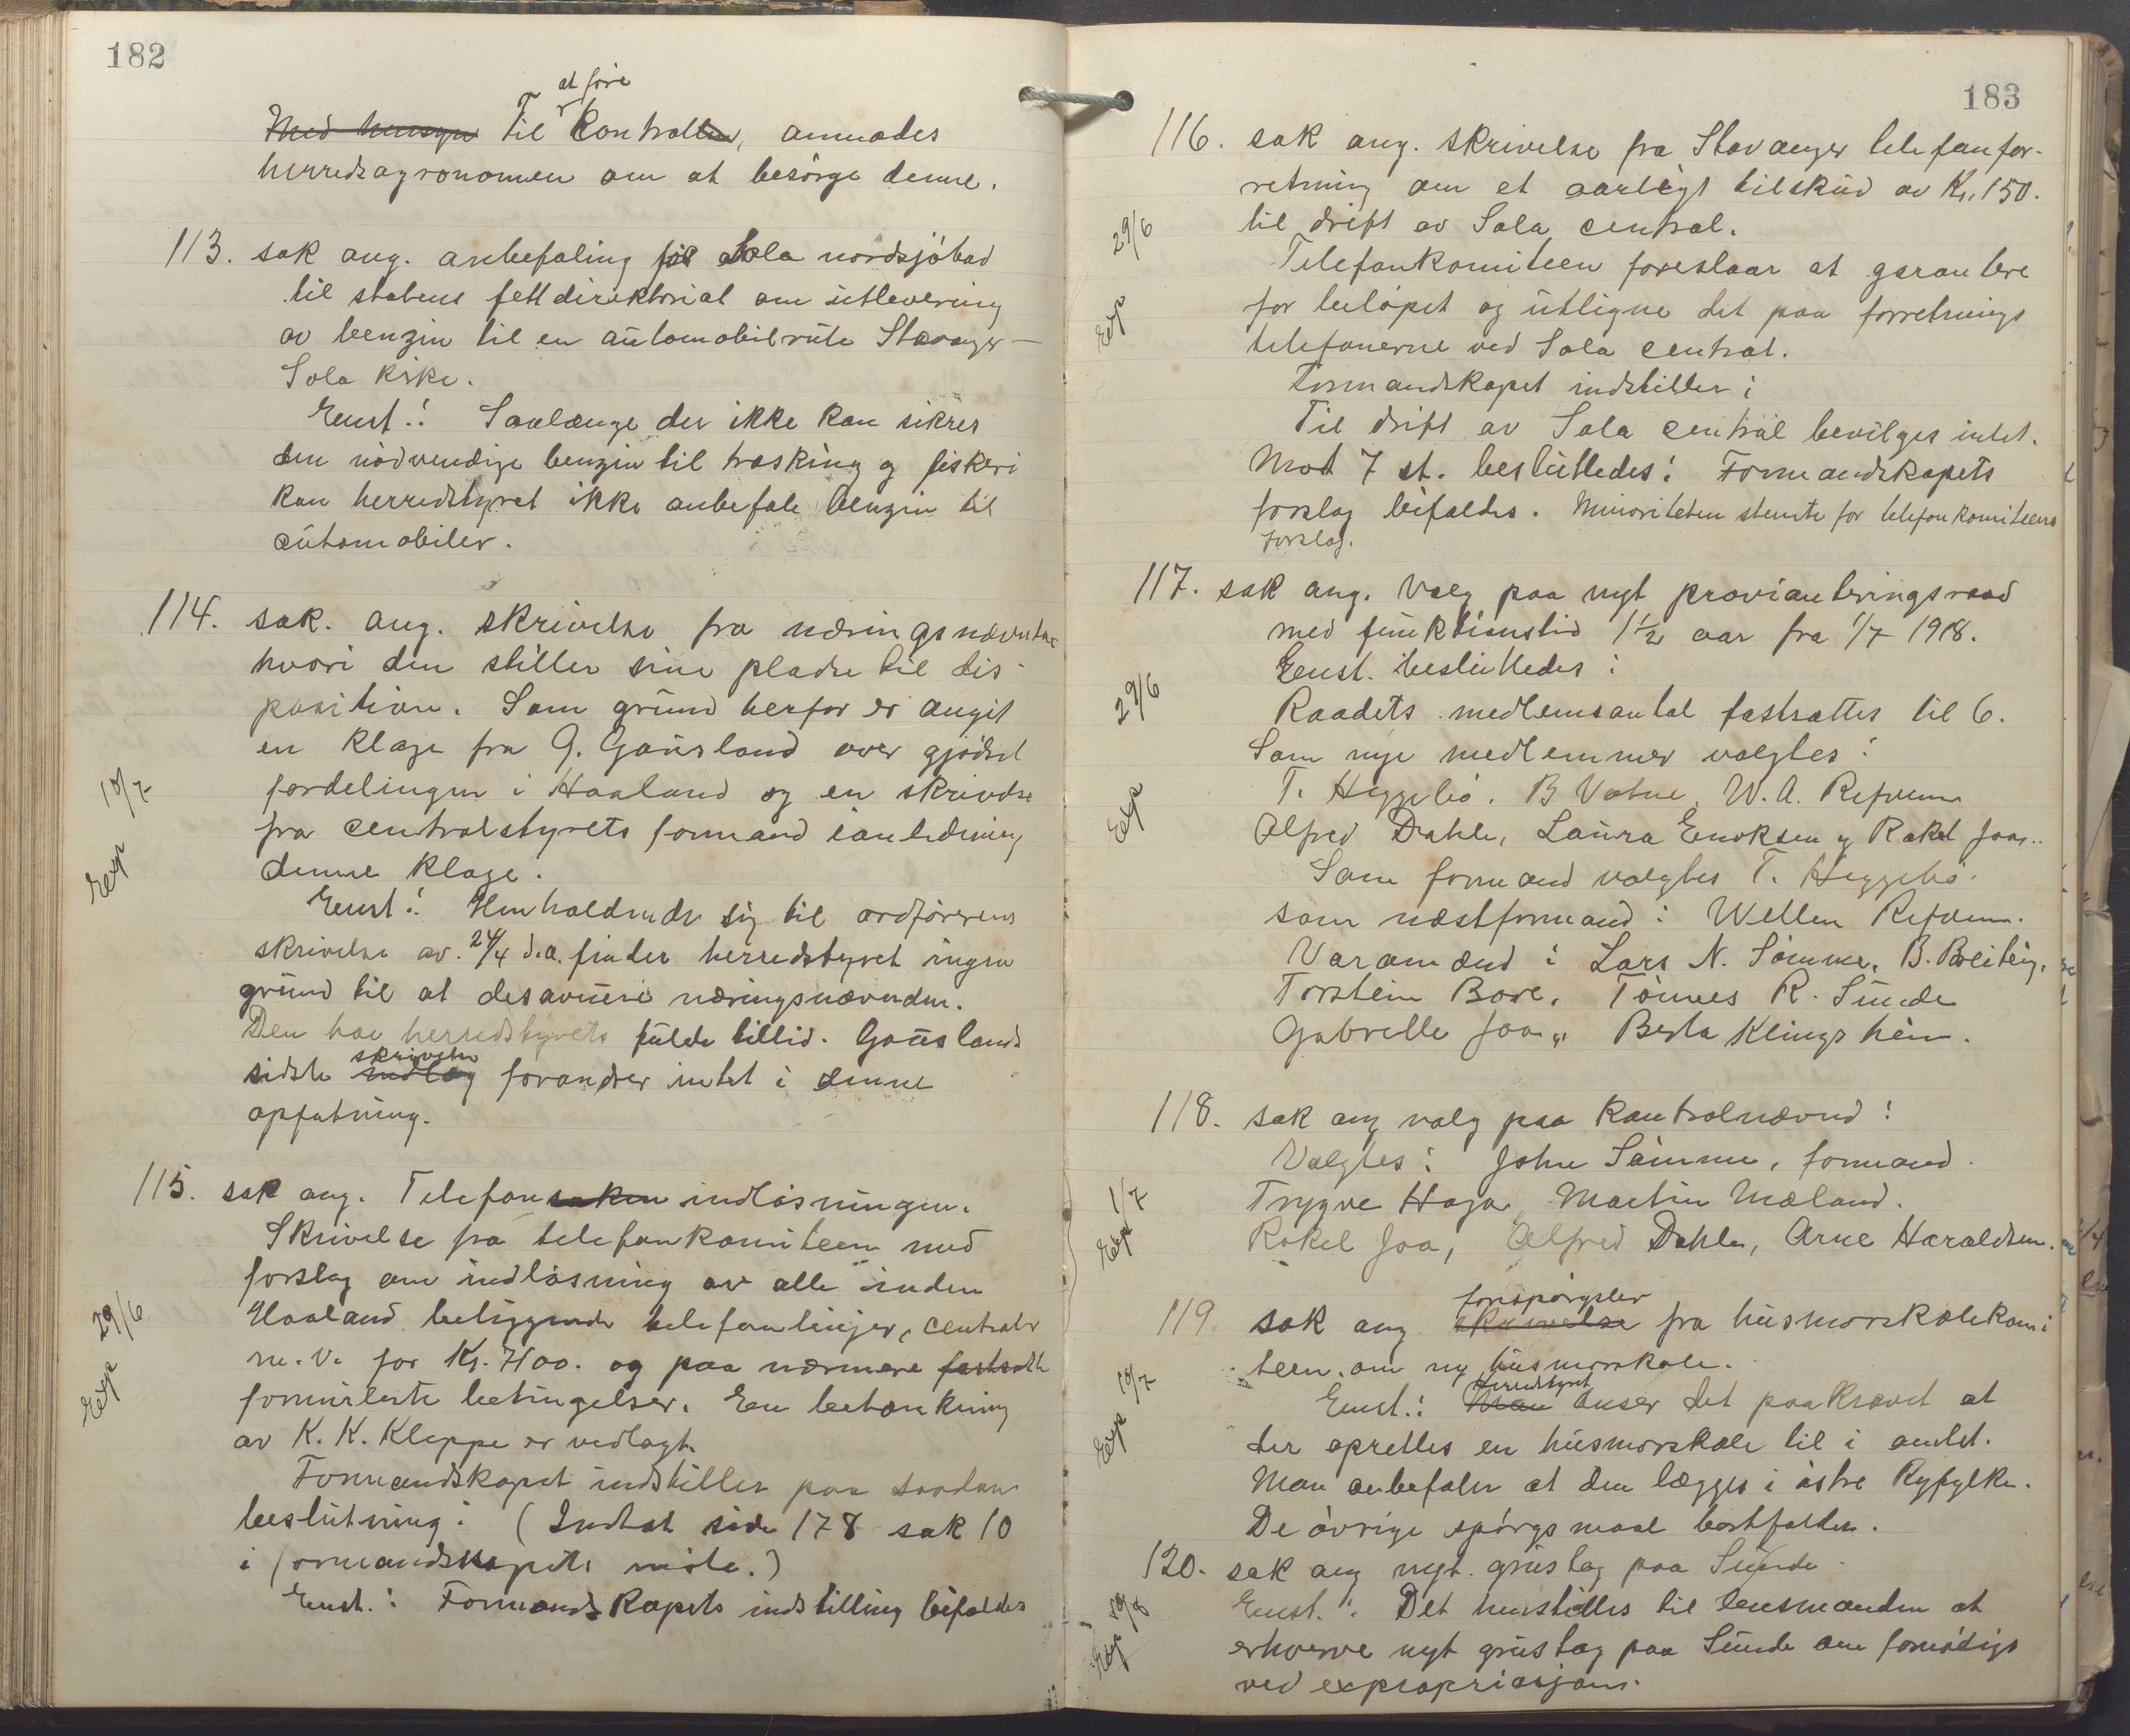 182
at före
Med hensyn Til Kontrollen, anmodes
herredsagronomen om at besörge denne.
113. sak ang. anbefaling for Sola nordsjöbad
til statens fettdirektorat om utlevering
av benzin til en automobilrute Stavanger –
Sola kirke.
Enst.: Saalænge der ikke kan sikres
den nödvendige benzin til træsking og fiskeri
kan herredstyret ikke anbefale benzin til
automobiler.
114. sak. ang. skrivelse fra næringsnævnden
hvori den stiller sine pladse til dis-
position. Som grund herfor er angit
en klage fra G. Gausland over gjödsel
fordelingen i Haaland og en skrivelse
fra centralstyrets formand i anledning
denne klage.
Exp 10/7
Enst.: Henholdende sig til ordförerens
skrivelse av 24/4 d.a. finder herredstyret ingen
grund til at desavuere næringsnævnden.
Den har herredstyrets fulde tillid. Gauslands
skrivelse
sidste indlæg forandrer intet i denne
opfatning.
115. sak ang. Telefonsaken indlösningen.
Skrivelse fra telefonkomiteen med
forslag om indlösning av alle inden
Haaland beliggende telefonlinjer, centraler
m.v. for Kr. 7400. og paa nærmere fastsatte
formulerte betingelser. En betænkning
av K. K. Kleppe er vedlagt.
Exp 29/6
Formandskapet indstiller paa saadan
beslutning: (Indtat side 178 sak 10
i formandskapets möte.)
Enst.: Formandskapets indstilling bifaldes
183
116. sak ang. skrivelse fra Stavanger telefonfor-
retning om et aarligt tilskud av Kr. 150.
til drift av Sola central.
Exp 29/6
Telefonkomiteen foreslaar at garantere
for belöpet og utligne det paa forretnings
telefonerne ved Sola central.
Formandskapet indstiller:
Til drift av Sola central bevilges intet.
Mot 7 st. besluttedes: Formandskapets
forslag bifaldes. Minoriteten stemte for telefonkomiteens
forslag.
117. sak ang. Valg paa nyt provianteringsraad
med funktionstid 1 1/2 aar fra 1/7 1918.
Enst. besluttedes:
Raadets medlemsantal fastsættes til 6.
Som nye medlemmer valgtes:
T. Heggebö. B Vatne, W. A. Refvem
Alfred Dahle, Laura Enoksen og Rakel Joa..
Exp 29/6
Som formand valgtes T. Heggebö.
som næstformand: Wellem Refvem.
Varamænd: Lars N. Sömme, B. Breiteig,
Torstein Bore, Tönnes R. Sunde
Gabrielle Joa,, Berta Klingsheim.
118. sak ang valg paa Kontrolnævnd:
Valgtes: John Sömme, formand.
Trygve Haga, Martin Mæland.
Rakel Joa, Alfred Dahle, Arne Haraldsen.
Exp 1/7
forespörgsler
119 sak ang skrivelse fra husmorskolekomi
teen, om ny husmorskole.
Herredstyret
Enst.: Man anser det paakrævet at
der oprettes en husmorskole til i amtet.
Man anbefaler at den lægges i östre Ryfylke.
De övrige spörgsmaal bortfalder.
Exp 10/7
120. sak ang nyt. grustag paa Sunde.
Enst.: Det henstilles til lensmanden at
erhverve nyt grustag paa Sunde om fornödigt
ved expropriasjon.